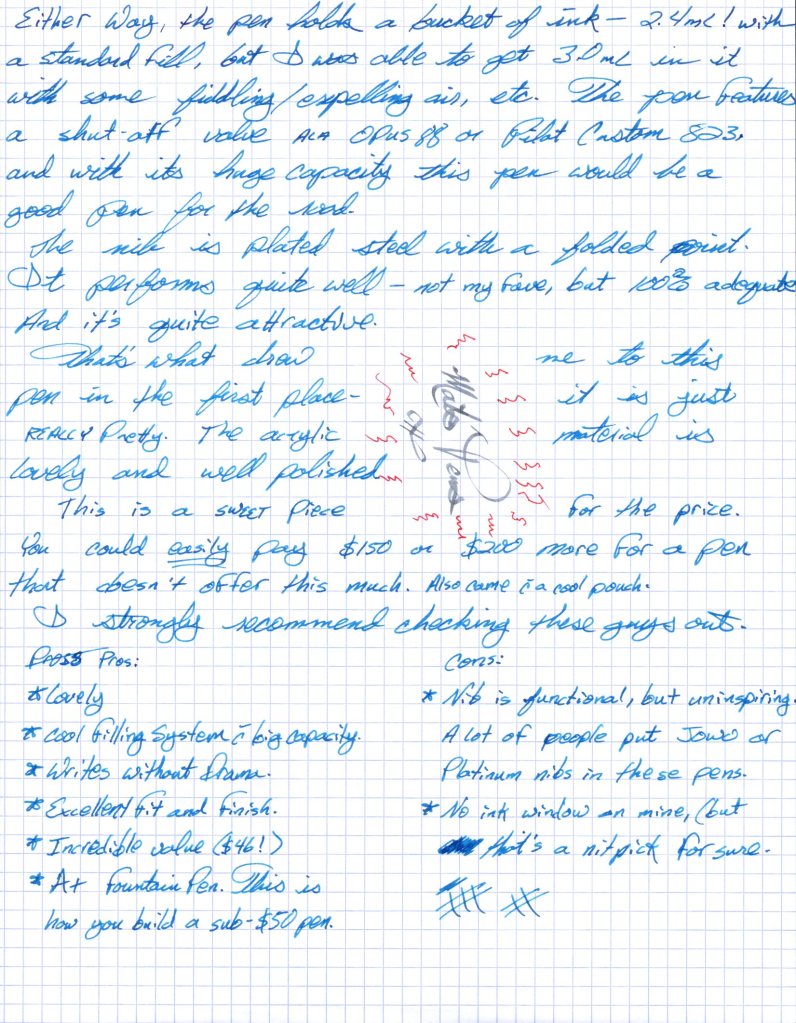 Either way, the pen holds a bucket of ink — 2.4mL! with
a standard fill, but I was able to get 3.0mL in it
with some fiddling/expelling air, etc. The pen features
a shut-off valve ALA OPUS 88 or Pilot Custom 823,
and with its huge capacity this pen would be a
good pen for the road.
The nib is plated steel with a folded point.
It performs quite well — not my fave, but 100% adequate
And it's quite attractive.
That's what drew me to this
pen in the first place — it is just
REALLY Pretty. The acrylic material is
lovely and well polished
This is a sweet piece for the price.
You could easily pay $150 or $200 more for a pen
that doesn't offer this much. Also came c̄ a cool pouch.
I strongly recommend checking these guys out.
Pros:
* Lovely
* Cool filling system c̄ big capacity.
* Writes without Drama.
* Excellent fit and finish.
* Incredible value ($46!)
* A+ Fountain Pen. This is
how you build a sub-$50 pen.
Cons:
* Nib is functional, but uninspiring.
A lot of people put Jowo or
Platinum nibs in these pens.
* No ink window on mine, (but
that's a nitpick for sure.